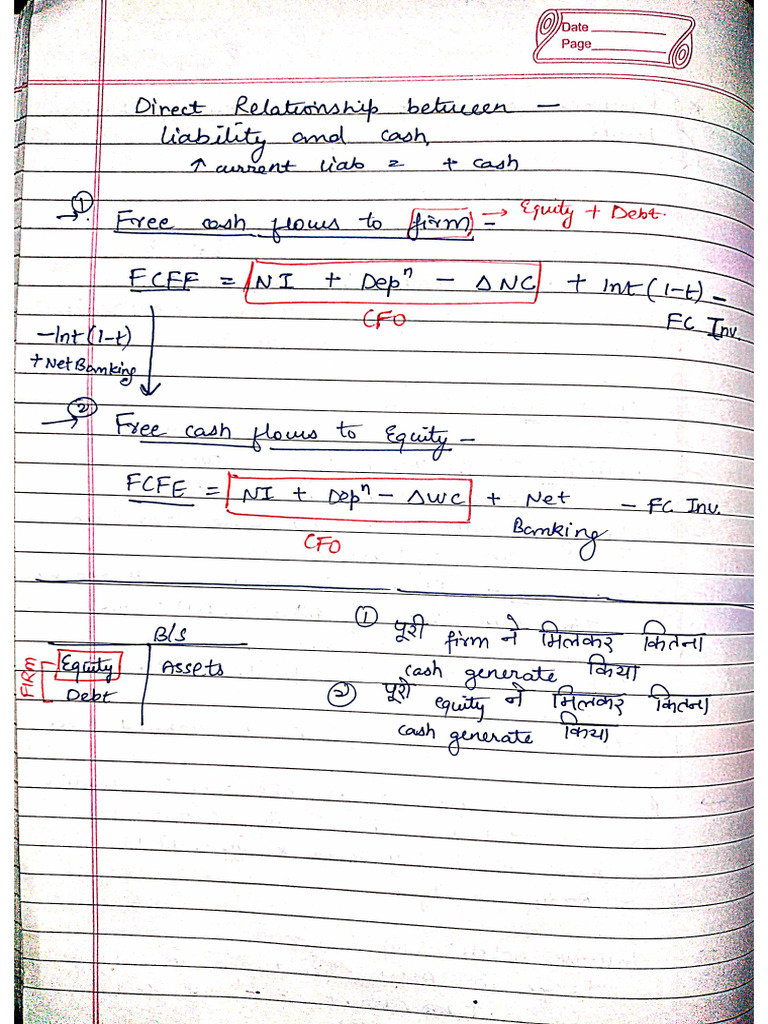 Date
Page
Direct Relationship between —
liability and cash,
↑ current liab = + cash
→ ① Free cash flows to firm = → Equity + Debt.
FCFF = NI + Depⁿ - ΔNC + Int (1-t) -
FC Inv.
CFO
-Int (1-t)
+ Net Banking
→ ② Free cash flows to Equity —
FCFE = NI + Depⁿ - ΔWC + Net - FC Inv.
Banking
CFO
B/S
FIRM
Equity Assets
Debt
① पूरी firm ने मिलकर कितना
cash generate किया
② पूरी equity ने मिलकर कितना
cash generate किया